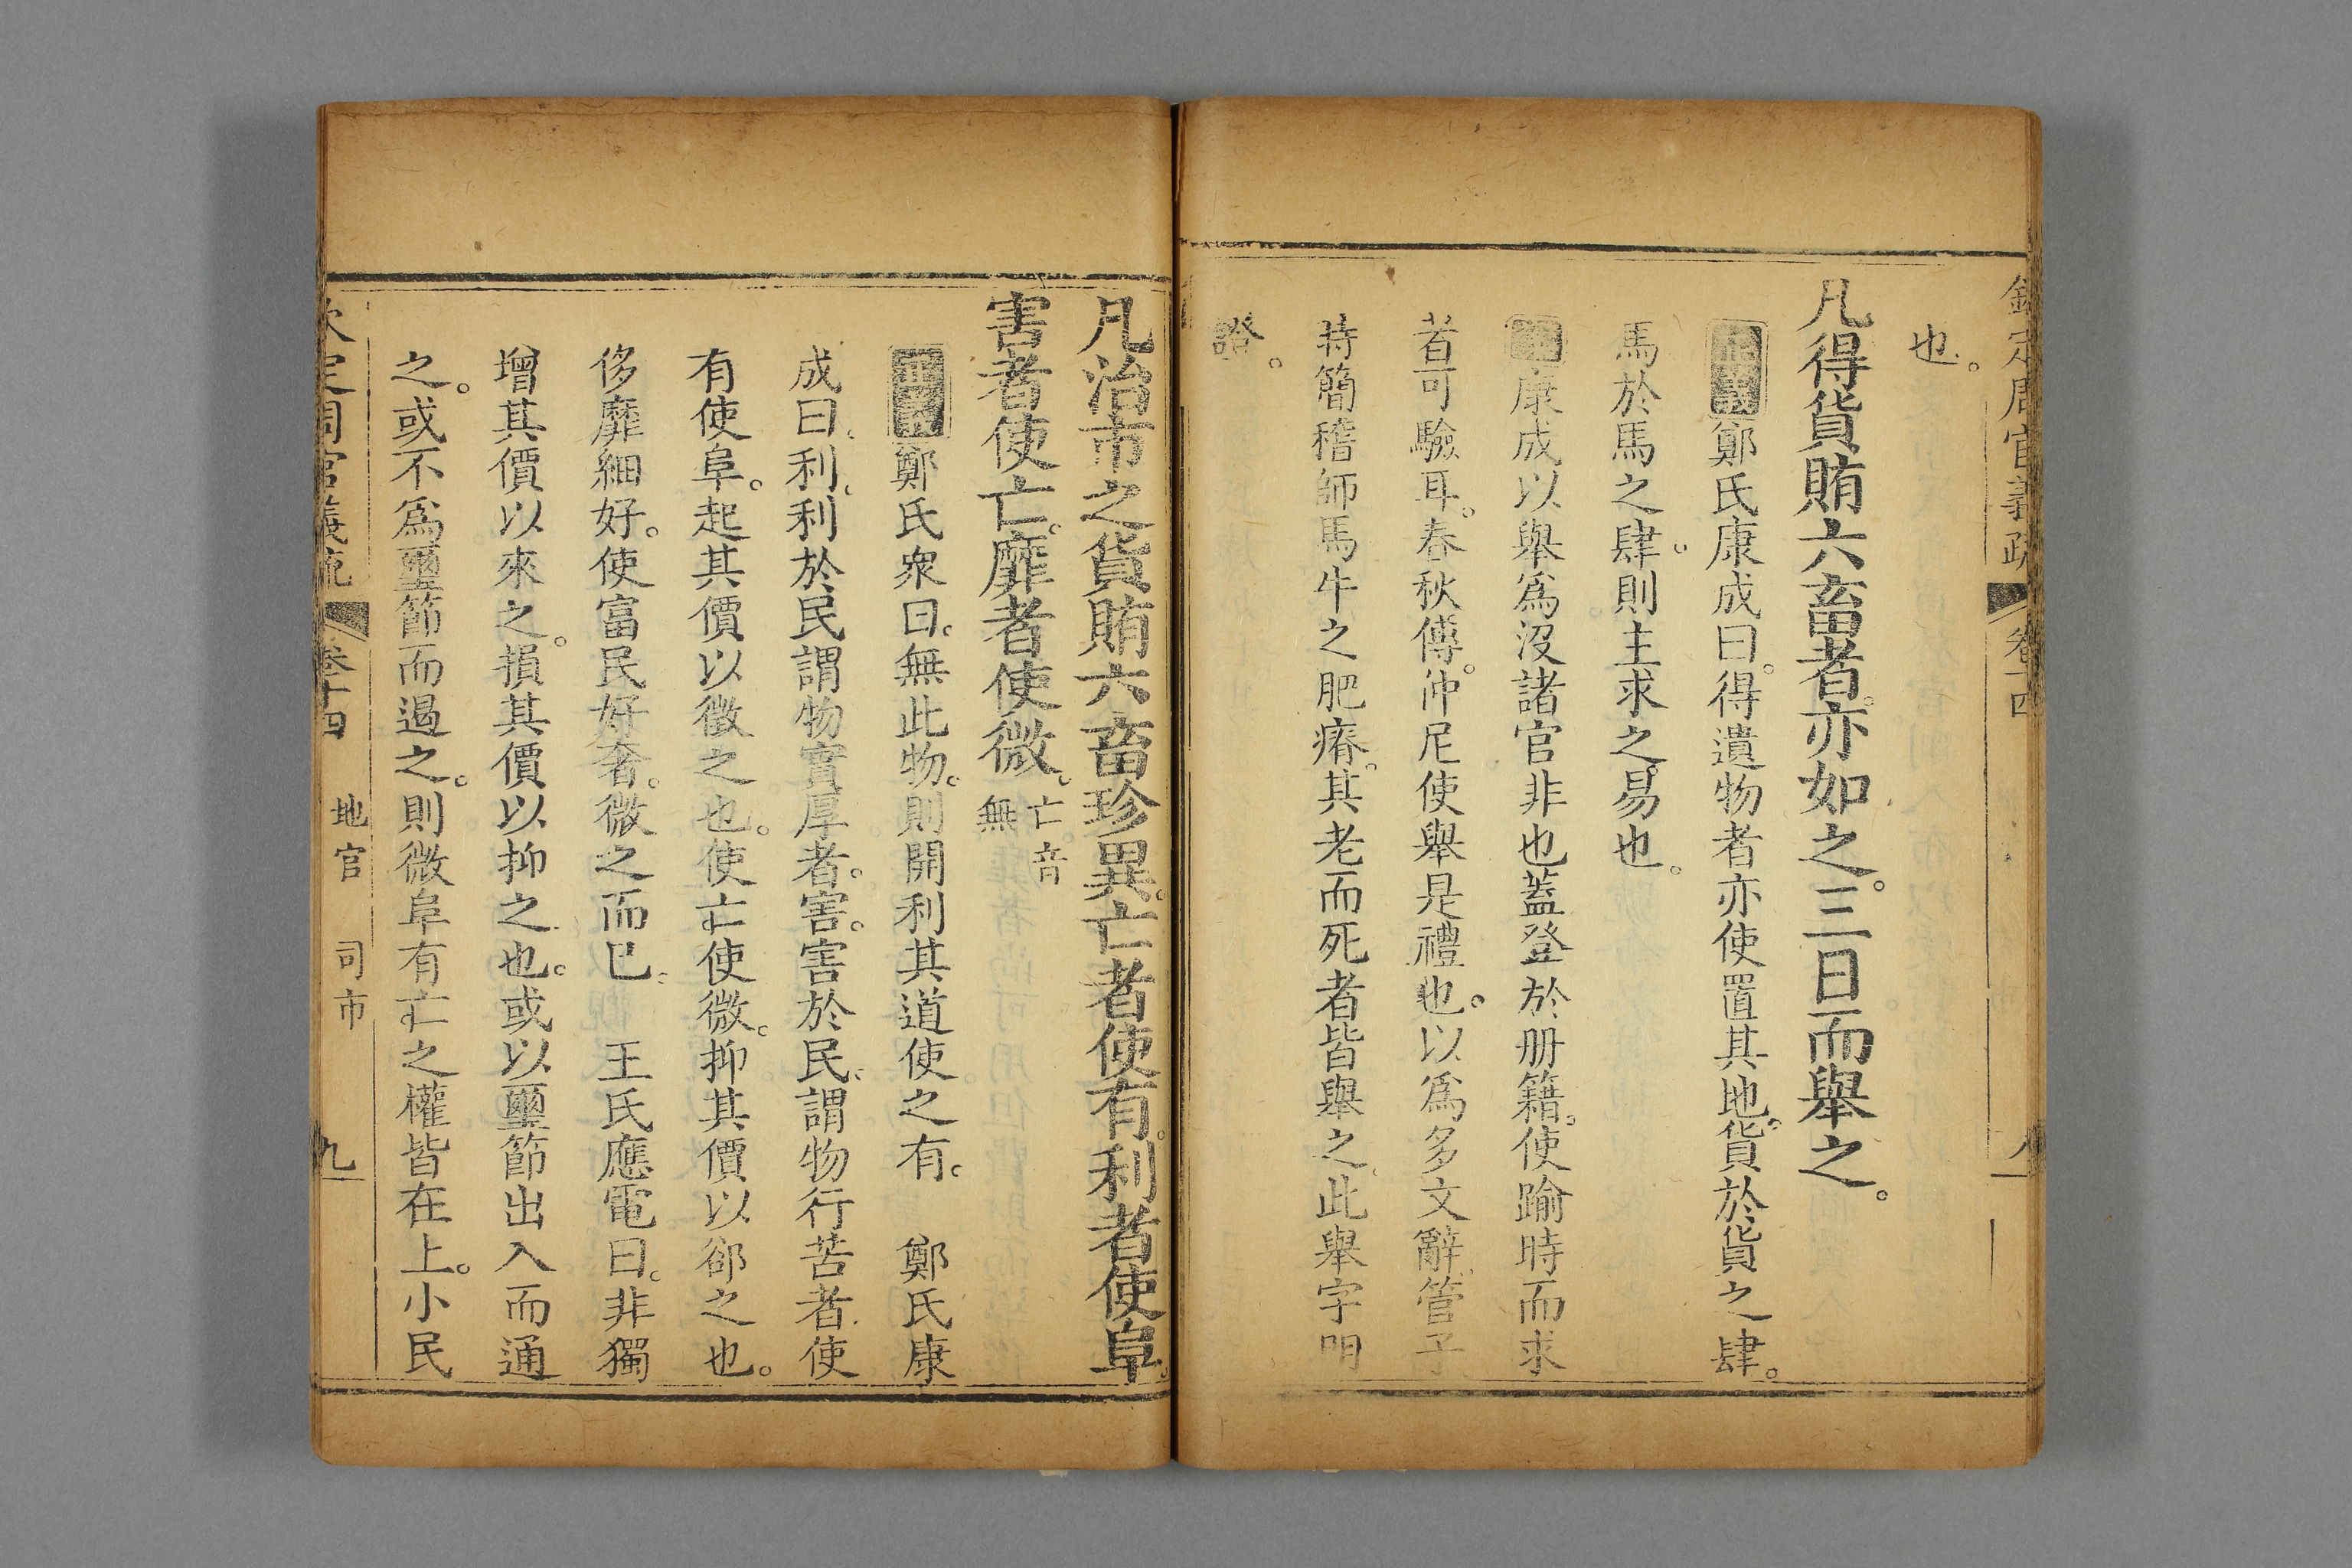 欽定周官義疏 卷十四 八
也。
凡得貨賄六畜者。亦如之。三日而舉之。
正義鄭氏康成曰。得遺物者亦使置其地。貨於貨之肆。
馬於馬之肆。則主求之易也。
康成以舉為沒諸官非也蓋登於册籍。使踰時而求
者可驗耳。春秋傳。仲尼使舉是禮也。以為多文辭。管子
時簡稽師馬牛之肥瘠。其老而死者皆舉之。此舉字明
證。
凡治市之貨賄六畜珍異。亡者使有。利者使阜。
害者使亡。靡者使微。亡音無
正義鄭氏衆曰。無此物。則開利其道使之有。 鄭氏康
成曰。利。利於民。謂物實厚者。害。害於民。謂物行苦者。使
有使阜。起其價以徵之也。使亡使微。抑其價以郤之也。
侈靡細好。使富民好奢。微之而已。 王氏應電曰。非獨
增其價以來之。損其價以抑之也。或以璽節出入而通
之。或不爲璽節而遏之。則微阜有亡之權皆在上。小民
欽定周官義疏 卷十四 地官 司市 九